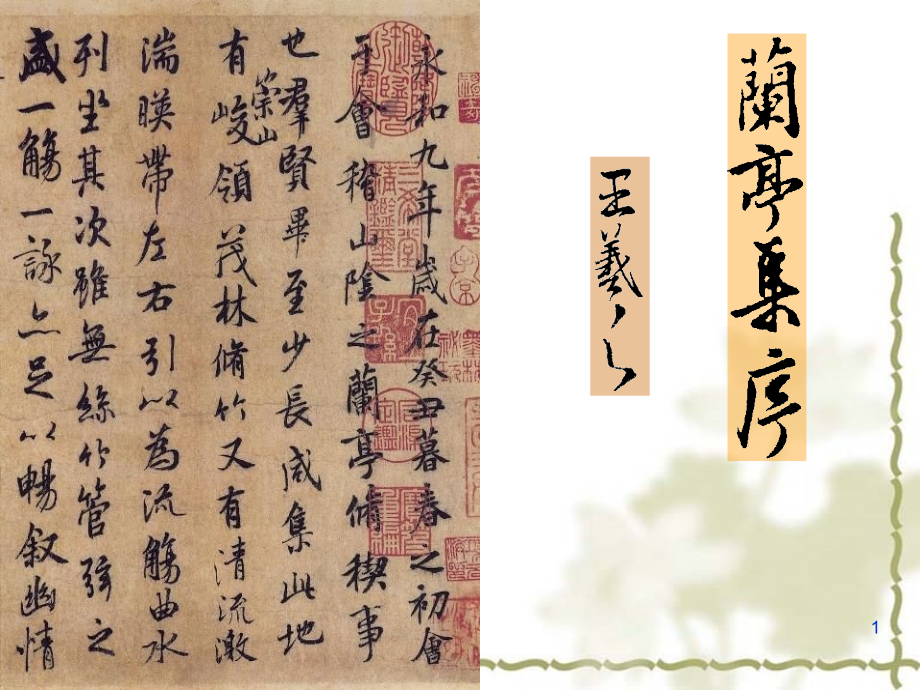 蘭亭集序
王羲之
永和九年歲在癸丑暮春之初會
于會稽山陰之蘭亭脩稧事
也羣賢畢至少長咸集此地
有崇山峻領茂林脩竹又有清流激
湍暎帶左右引以為流觴曲水
列坐其次雖無絲竹管弦之
盛一觴一詠亦足以暢敘幽情
1